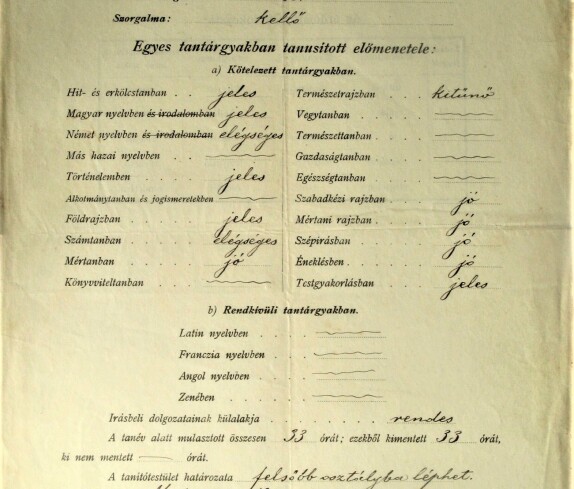 Szorgalma: kellő
Egyes tantárgyakban tanusitott előmenetele:
a) Kötelezett tantárgyakban.
Hit- és erkölcstanban . . jeles
Magyar nyelvben és irodalomban jeles
Német nyelvben és irodalomban elégséges
Más hazai nyelvben . .
Történelemben . . . . jeles
Alkotmánytanban és jogismeretekben .
Földrajzban . . . . jeles
Számtanban . . . . elégséges
Mértanban . . . . jó
Könyvviteltanban . . .
Természetrajzban . . . kitünő
Vegytanban . . . .
Természettanban . . .
Gazdaságtanban . . .
Egészségtanban . . .
Szabadkézi rajzban . . . jó
Mértani rajzban . . . . jó
Szépirásban . . . . jó
Éneklésben . . . . jó
Testgyakorlásban . . . jeles
b) Rendkívüli tantárgyakban.
Latin nyelvben . . .
Franczia nyelvben . . .
Angol nyelvben . . .
Zenében . . . .
Irásbeli dolgozatainak külalakja . . . . rendes
A tanév alatt mulasztott összesen 33 órát; ezekből kimentett 33 órát,
ki nem mentett — órát.
A tanitótestület határozata felsőbb osztályba léphet.